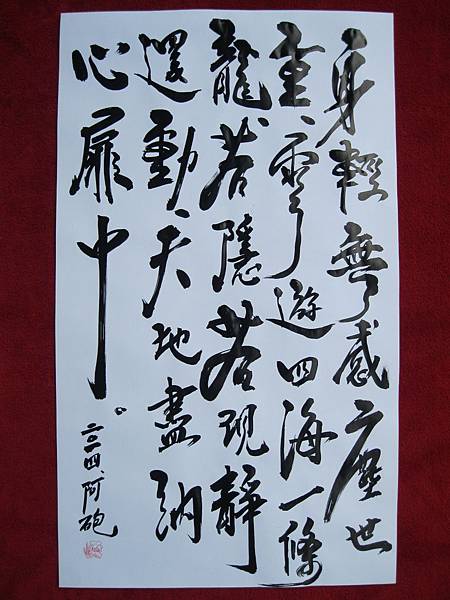 身輕無感塵世
重、雲遊四海一條
龍、若隱若現靜
還動、天地盡納
心扉中。
二〇一四、阿砲